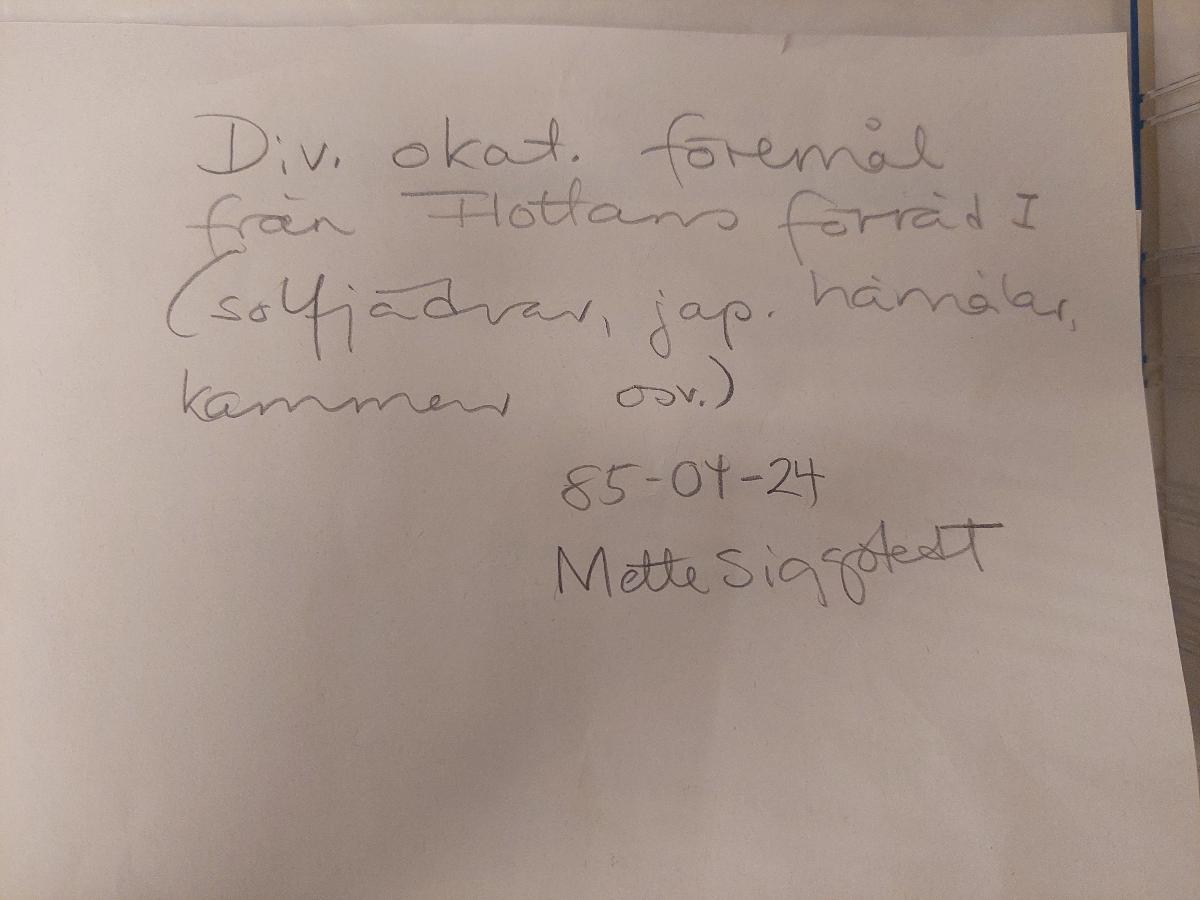 Div. okat. föremål
från Flottans förråd I
(solfjädrar, jap. hårnålar,
kammar osv.)
85-04-24
Mette Siggstedt